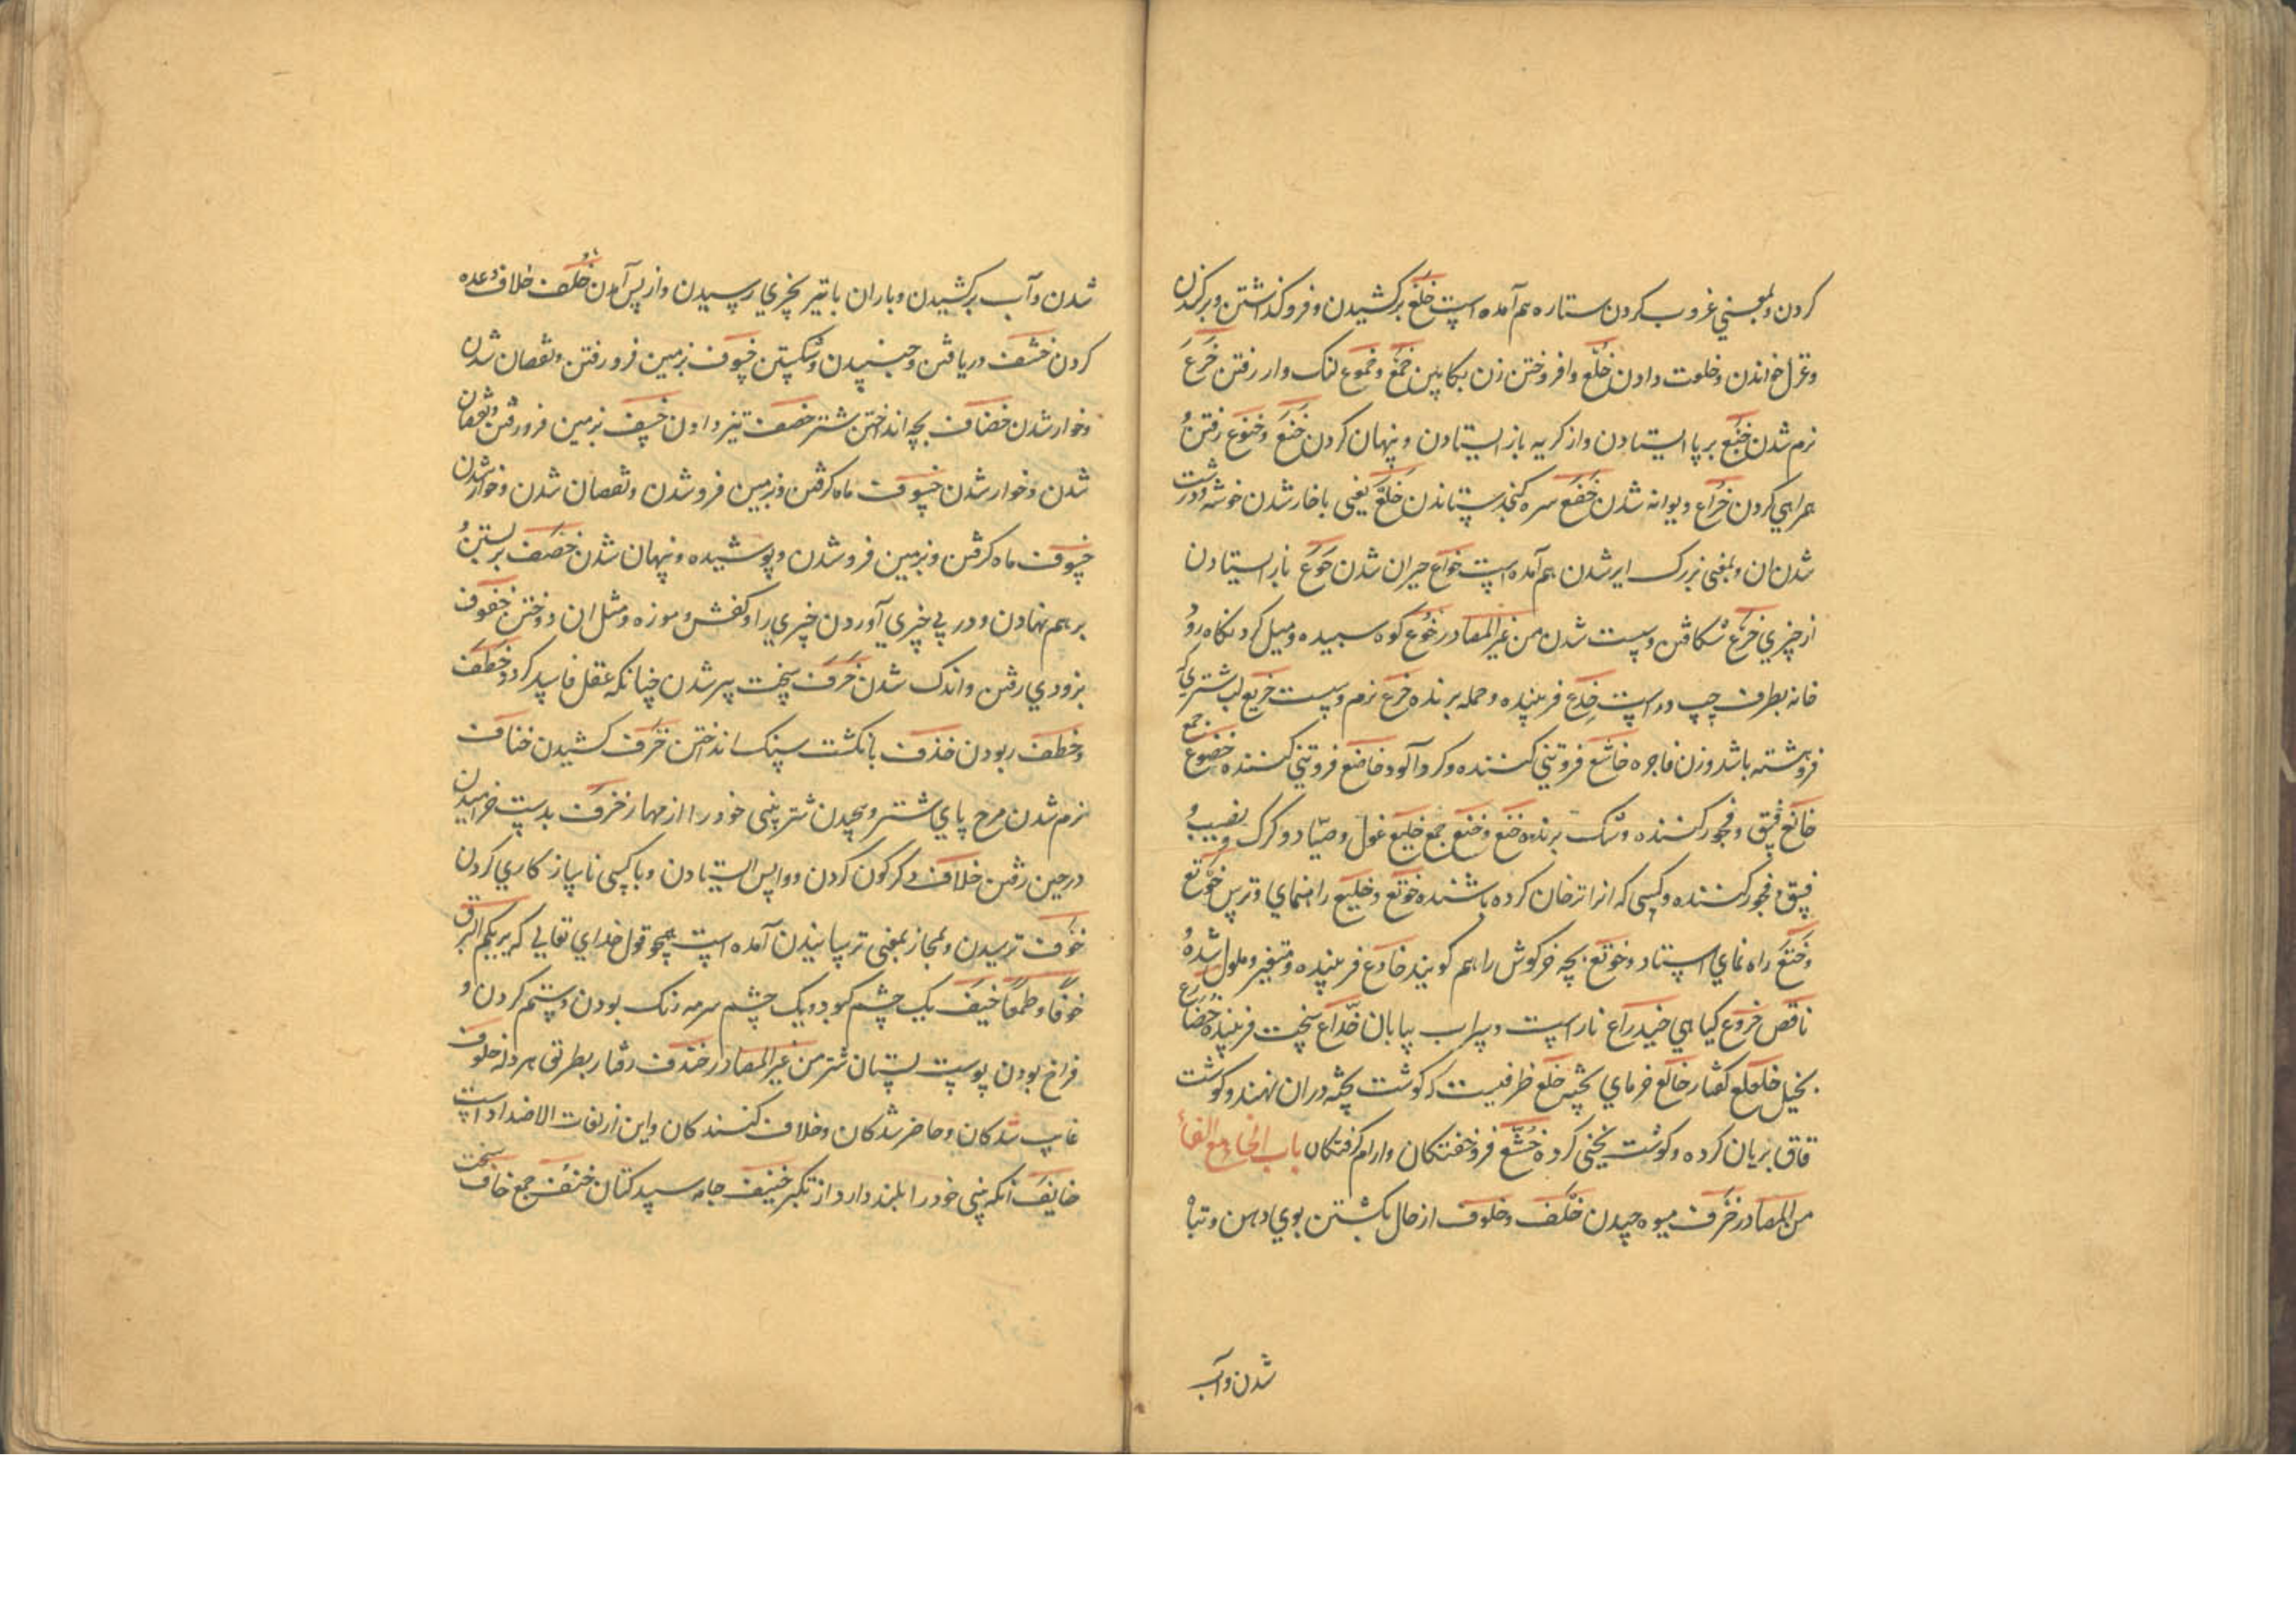 کردن و بمعنی غروب کردن ستاره هم آمده است خلع برکشیدن و فروگذاشتن و برکندن
و عزل خواندن و خلوت دادن خلع و افروختن زن بکابین خمع و خموع لنک وار رفتن خرع
نرم شدن خنع برپا ایستادن و از کریه باز ایستادن و پنهان کردن خنع و خنوع رفتن و
همراهی کردن خراع دیوانه شدن خفع سره کنجد ستاندن خلع یعنی باخار شدن خوشه و درشت
شدن ان و بمعنی بزرک ایر شدن هم آمده است خواع حیران شدن خوع باز ایستادن
از چیزی خزع شکافتن و سست شدن من غیر المصادر خوع کوه سپیده و میل کرد نکاه رو
خانه بطرف چپ و راست خدع فریبنده و حمله برنده خرع نرم و سست خریع لب شتری که
فروهشته باشد و زن فاجره خاشع فروتنی کننده و کردآلود خاضع فروتنی کننده خضوع جمع
خانع فسق و فجور کننده و شک برنده خنع و خنع جمع خلیع غول و صیاد و کرک و بی نصیب و
فسق و فجور کننده و کسی که از اترخان کرده باشند خوتع و خلیع راهنمای و ترس خوتع
و ختع راه نمای استاد و خوتع بچه خرکوش را هم کویند خادع فریبنده و متغیر و ملول شده و
ناقص خروع کیاهی خیدراع ناراست و سراب بیابان خداع سخت فریبنده خضارع
بخیل خلعلع کفتار خالع خرمای پخته خلع ظرفیست که کوشت پخته در ان نهند و کوشت
قاق بریان کرده و کوشت یخنی کرده خشع فروخفتکان و ارام کرفتکان باب الخاء مع الفاء
من المصادر خرف میوه چیدن خلف و خلوف از حال بکشتن بوی دهن و تباه
شدن و آب
شدن و آب برکشیدن و باران با تیر بچیزی رسیدن و از پس آمدن خلف خلاف وعده
کردن خشف دریافتن و جنبیدن و شکستن خسوف بزمین فرو رفتن و نقصان شدن
و خوار شدن خضاف بچه انداختن شتر خصف تیز دادن خسف بزمین فرو رفتن و نقصان
شدن و خوار شدن خسوف ماه کرفتن و بزمین فرو شدن و نقصان شدن و خوار شدن
خسوف ماه کرفتن و بزمین فرو شدن و پوشیده و پنهان شدن خصف بر بستن و
بر هم نهادن و در پی چیزی آوردن چیزی را و کفش و موزه و مثل ان دوختن خفوف
بزودی رفتن و اندک شدن خرف سخت پیر شدن چنانکه عقل فاسد کردد خطف
و خطف ربودن خذف بانکشت سنک انداختن خرف کشیدن خناف
نرم شدن مرح پای شتر و پیچیدن شتر بینی خود را از مهار خرف بدست خرامیدن
در حین رفتن خلاف دکرکون کردن و واپس ایستادن و با کسی ناسازکاری کردن
خوف ترسیدن و بمجاز بمعنی ترسانیدن آمده است همچو قول خدای تعالی که یریکم البرق
خوفا و طمعا خیف یک چشم کبود و یک چشم سرمه رنک بودن و ستم کردن و
فراخ بودن پوست پستان شتر من غیر المصادر خندف رفتار بطرقی هروله خلوف
غایب شدکان و حاضر شدکان و خلاف کنندکان و این از لغات الاضداد است
خانف آنکه بینی خود را بلند دارد از تکبر خنیف جامه سپید کتان خنف جمع خاف سخت